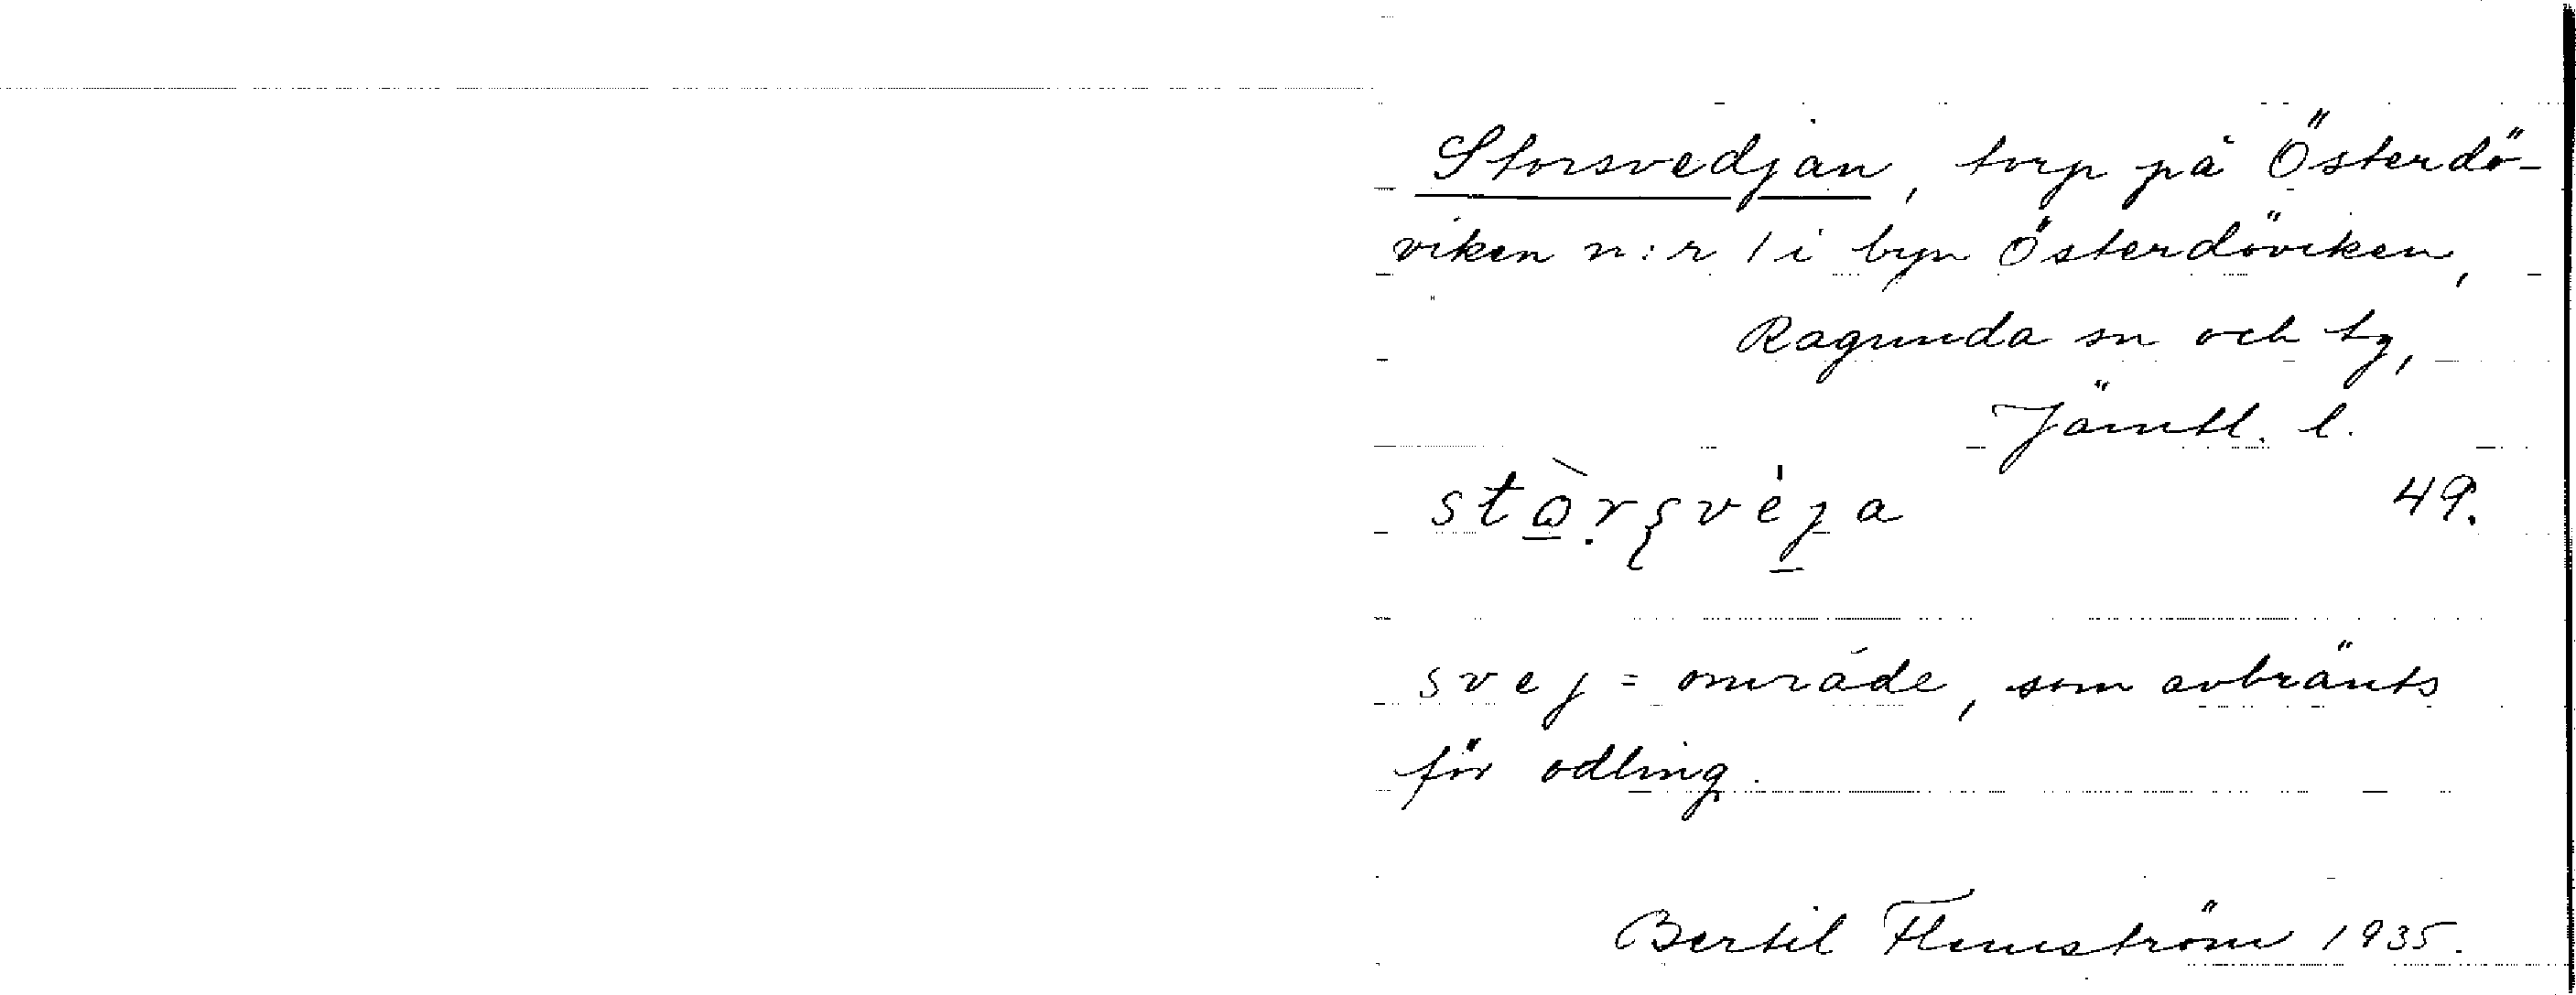 Storsvedjan, torp på Österdö-
viken n:r 1 i byn Österdöviken,
Ragunda sn och tg,
Jämtl. l.
49.
svej = område, som avbränts
för odling.
Bertil Flemström 1935.